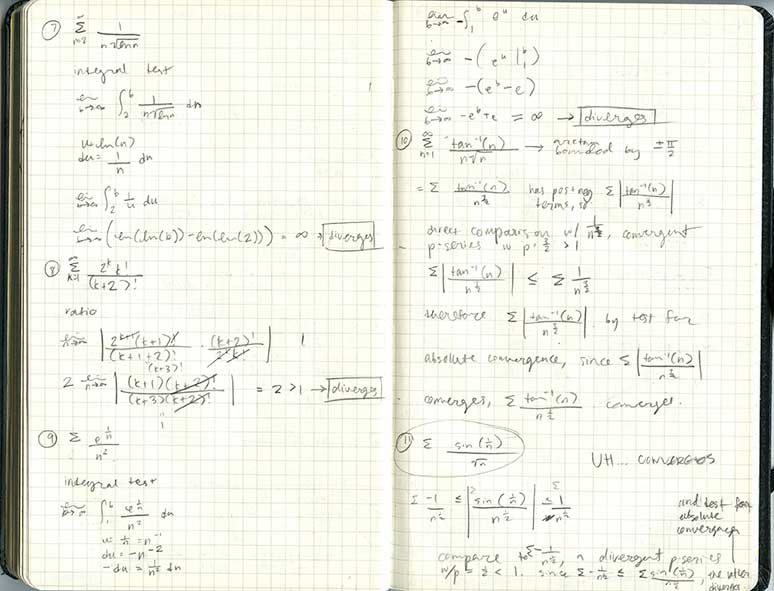 ⑦ ∞ Σ n=2 1/(n√ln n)
integral test
lim b→∞ ∫₂ᵇ 1/(n√ln n) dn
u=ln(n)
du = 1/n dn
lim b→∞ ∫₂ᵇ 1/u du
lim b→∞ (ln(ln(b)) - ln(ln(2))) = ∞ → diverges
⑧ ∞ Σ k=1 2ᵏk!/(k+2)!
ratio
lim |2ᵏ⁺¹(k+1)!/(k+1+2)! · (k+2)!/2ᵏk!| 1
(k+3)!
2 lim n→∞ |(k+1)(k+2)!/(k+3)(k+2)!| = 2 > 1 → diverges
"
1
⑨ Σ e^(1/n)/n²
integral test
lim b→∞ ∫₁ᵇ e^(1/n)/n² dn
u = 1/n = n⁻¹
du = -n⁻²
-du = 1/n² dn
lim b→∞ -∫₁ᵇ eᵘ du
lim b→∞ -(eᵘ|₁ᵇ)
lim b→∞ -(eᵇ-e)
lim b→∞ -eᵇ+e = ∞ → diverges
⑩ ∞ Σ n=1 tan⁻¹(n)/(n√n) → arctan bounded by ±π/2
= Σ tan⁻¹(n)/n^(3/2) has terms, so Σ|tan⁻¹(n)/n^(3/2)|
direct comparison w/ 1/n^(3/2), convergent
p-series w p = 3/2 > 1
Σ|tan⁻¹(n)/n^(3/2)| ≤ Σ 1/n^(3/2)
therefore Σ|tan⁻¹(n)/n^(3/2)| by test for
absolute convergence, since Σ|tan⁻¹(n)/n^(3/2)|
converges, Σ tan⁻¹(n)/n^(3/2) converges.
⑪ Σ sin(1/n)/√n
UH... CONVERGES
Σ -1/n^(1/2) ≤ |Σ sin(1/n)/n^(1/2)| ≤ Σ 1/n^(1/2)
and test for
absolute
convergence
compare to Σ-1/n^(1/2), a divergent p-series
w/p = 1/2 < 1. since Σ-1/n^(1/2) ≤ Σ sin(1/n)/n^(1/2), the
diverges.